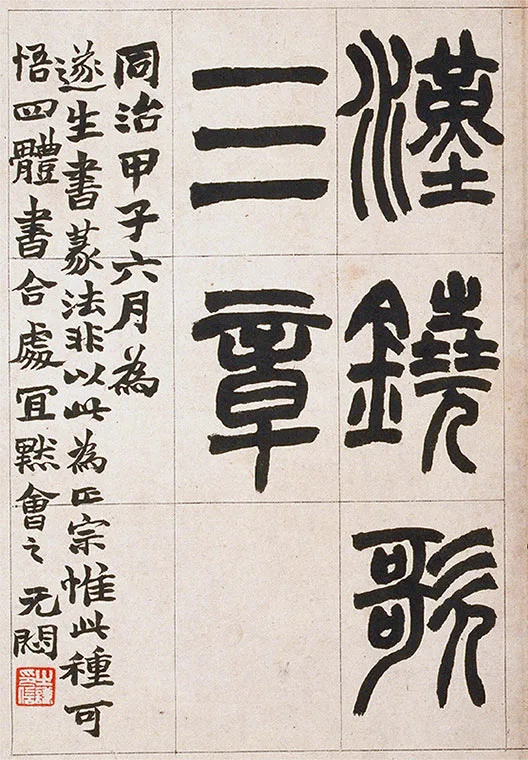 漢鐃歌
三章
同治甲子六月為
遂生書篆法非以此為正宗惟此種可
悟四體書合處冝默會之 无悶